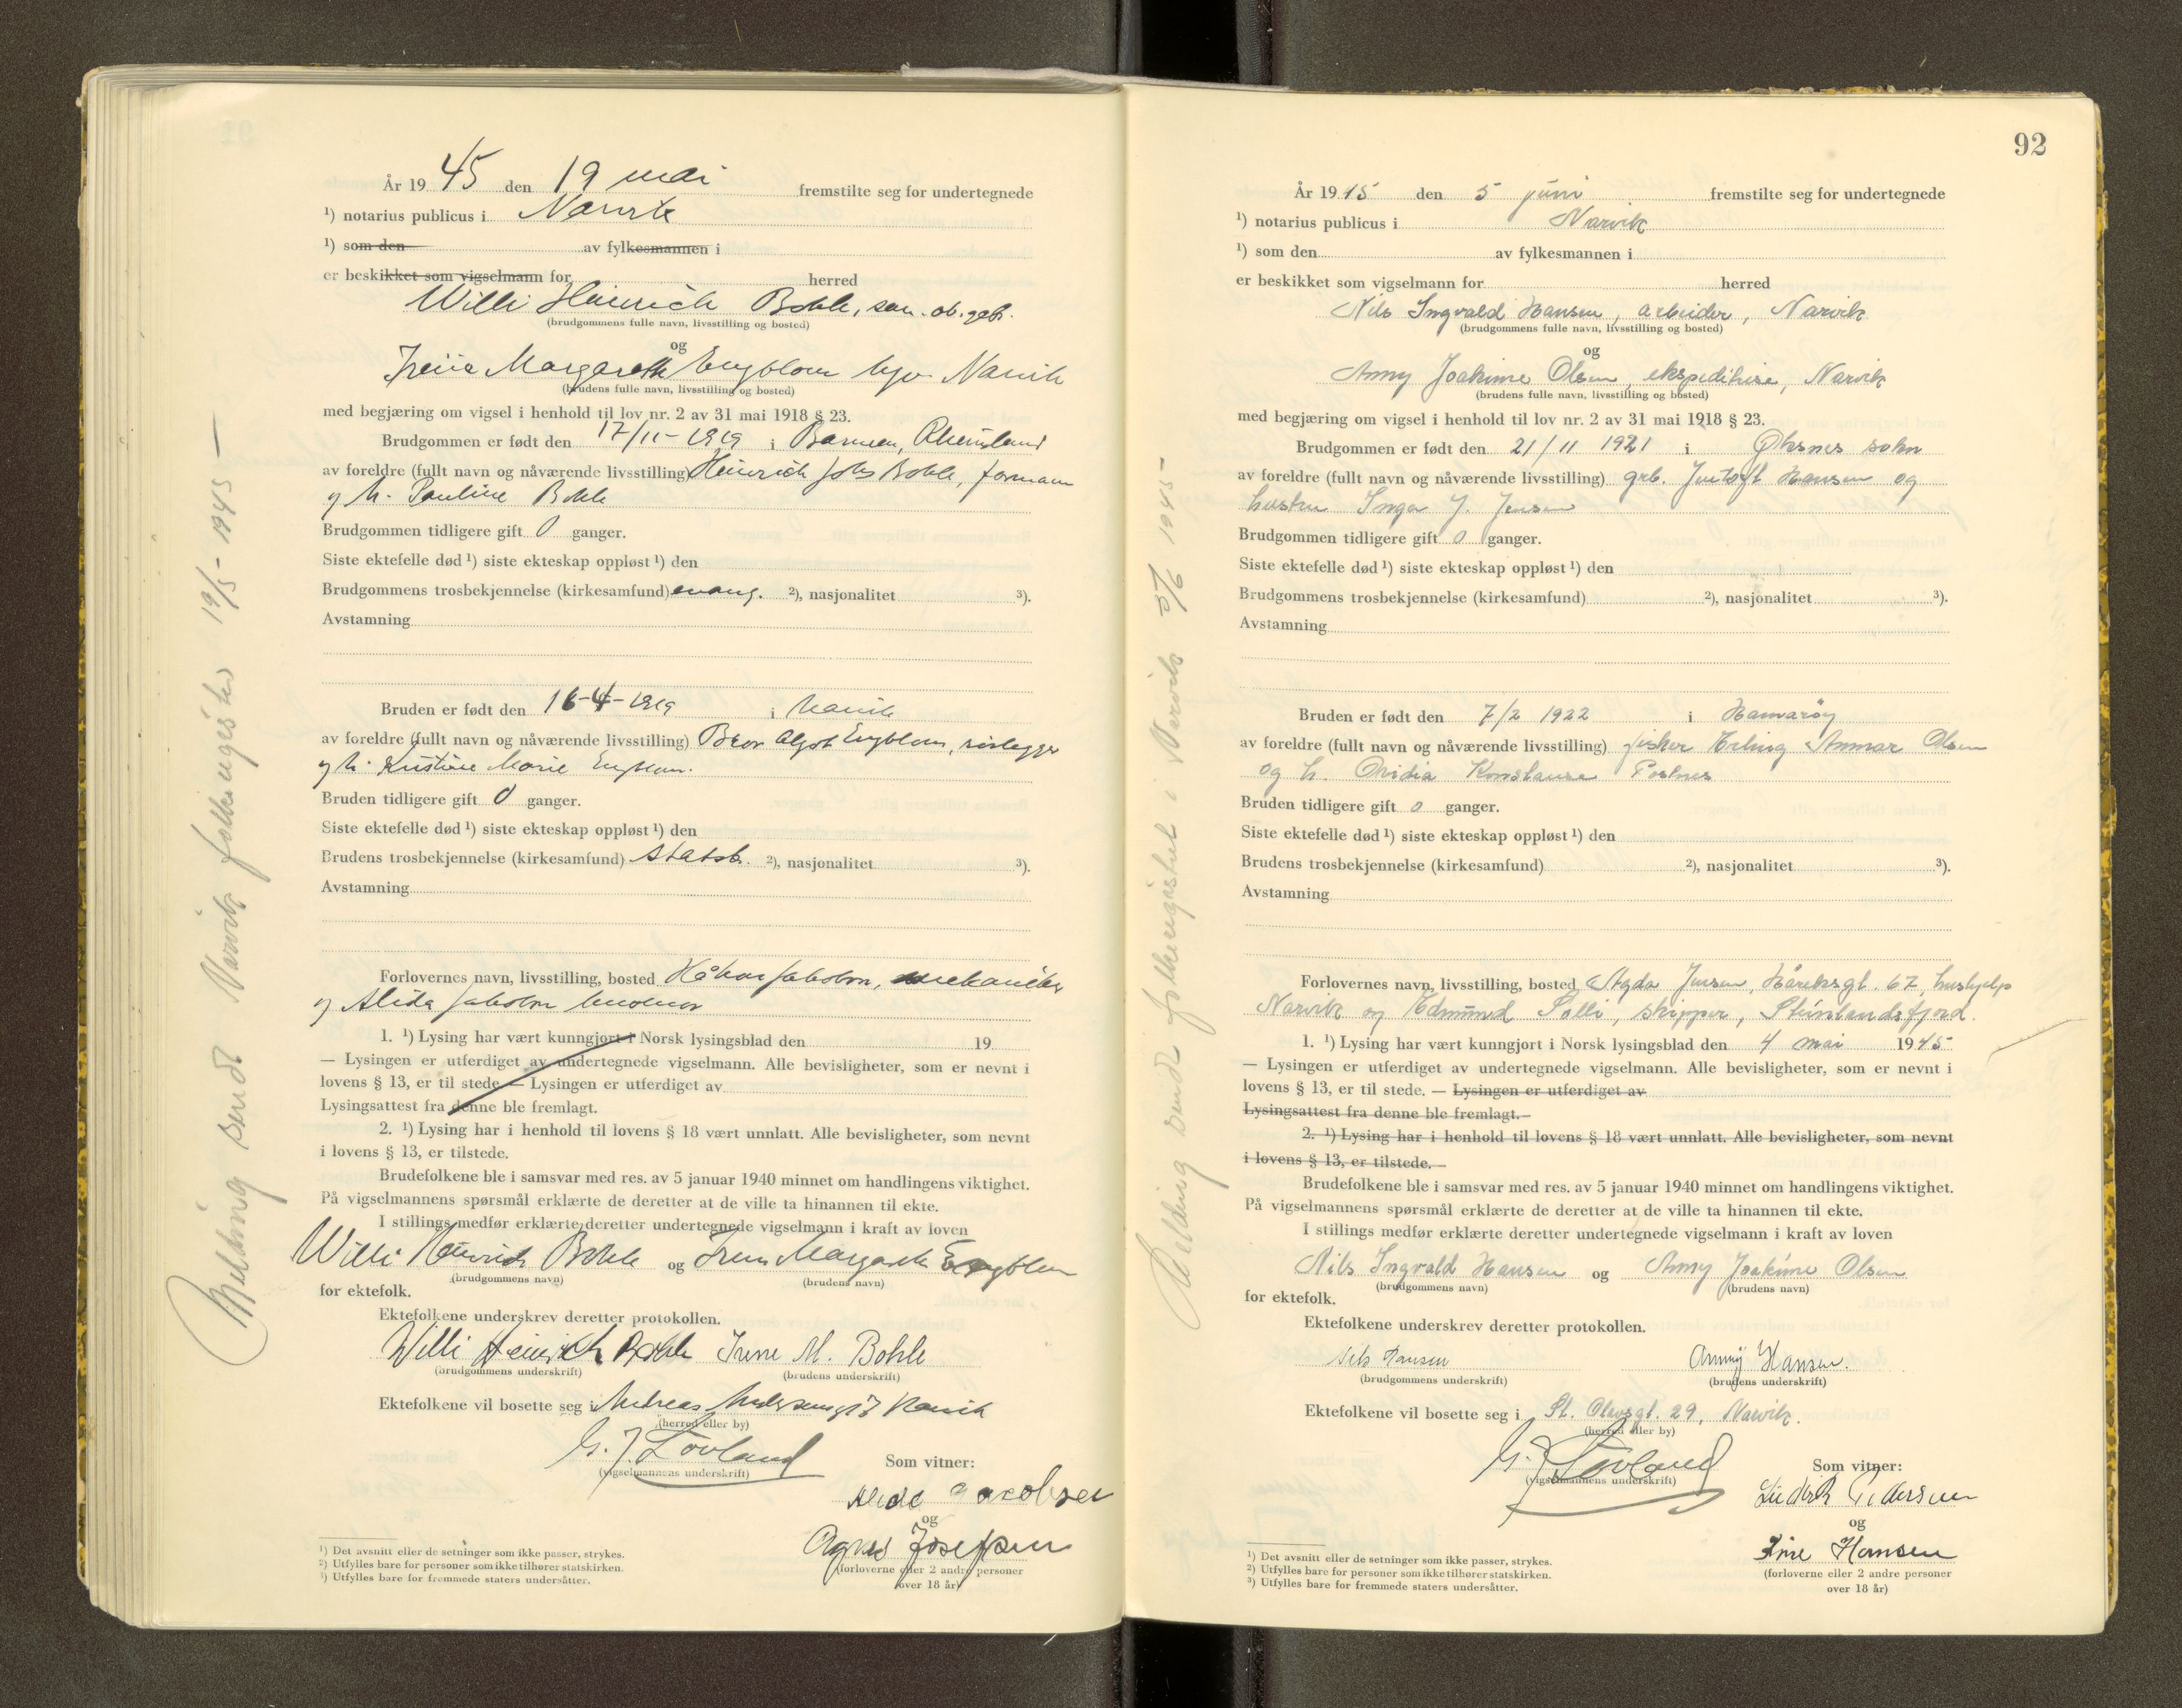 År 19 45 den 19 mai fremstilte seg for undertegnede
¹) notarius publicus i Narvik
¹) som den av fylkesmannen i
er beskikket som vigselmann for herred
Willi Heinrich Bohle, san. ob. gefr.
(brudgommens fulle navn, livsstilling og bosted)
og
Irene Margareth Engblom hjv. Narvik
(brudens fulle navn, livsstilling og bosted)
med begjæring om vigsel i henhold til lov nr. 2 av 31 mai 1918 § 23.
Brudgommen er født den 17/11-1919 i Barmen, Rheinland
av foreldre (fullt navn og nåværende livsstilling) Heinrich Johs Bohle, formann
og h. Pauline Bohle
Brudgommen tidligere gift 0 ganger.
Siste ektefelle død ¹) siste ekteskap oppløst ¹) den
Brudgommens trosbekjennelse (kirkesamfund) evang. ²), nasjonalitet ³).
Avstamning
Bruden er født den 16-4-1919 i Narvik
av foreldre (fullt navn og nåværende livsstilling) Algot Engblom, rørlegger
og h. Kristine Marie Engblom.
Bruden tidligere gift 0 ganger.
Siste ektefelle død ¹) siste ekteskap oppløst ¹) den
Brudens trosbekjennelse (kirkesamfund) statsk. ²), nasjonalitet ³).
Avstamning
Forlovernes navn, livsstilling, bosted Håkon Jakobsen, mekaniker
og Alida Jakobsen
1. ¹) Lysing har vært kunngjort i Norsk lysingsblad den 19
— Lysingen er utferdiget av undertegnede vigselmann. Alle bevisligheter, som er nevnt i
lovens § 13, er til stede. — Lysingen er utferdiget av
Lysingsattest fra denne ble fremlagt.
2. ¹) Lysing har i henhold til lovens § 18 vært unnlatt. Alle bevisligheter, som nevnt
i lovens § 13, er tilstede.
Brudefolkene ble i samsvar med res. av 5 januar 1940 minnet om handlingens viktighet.
På vigselmannens spørsmål erklærte de deretter at de ville ta hinannen til ekte.
I stillings medfør erklærte deretter undertegnede vigselmann i kraft av loven
Willi Heinrich Bohle og Irene Margareth Engblom
(brudgommens navn) (brudens navn)
for ektefolk.
Ektefolkene underskrev deretter protokollen.
Willi Heinrich Bohle Irene M. Bohle
(brudgommens underskrift) (brudens underskrift)
Ektefolkene vil bosette seg i Andreas Narvik
(herred eller by)
G. J. Lovland
(vigselmannens underskrift)
Som vitner:
Alida Jacobsen
og
Agnes Josefsen
(forloverne eller 2 andre personer
over 18 år)
¹) Det avsnitt eller de setninger som ikke passer, strykes.
²) Utfylles bare for personer som ikke tilhører statskirken.
³) Utfylles bare for fremmede staters undersåtter.
Melding sendt Narvik folkeregister 19/5-1945-
92
År 19 45 den 5 juni fremstilte seg for undertegnede
¹) notarius publicus i Narvik
¹) som den av fylkesmannen i
er beskikket som vigselmann for herred
Nils Ingvald Hansen, arbeider, Narvik
(brudgommens fulle navn, livsstilling og bosted)
og
Anny Joakime Olsen, ekspeditrise, Narvik
(brudens fulle navn, livsstilling og bosted)
med begjæring om vigsel i henhold til lov nr. 2 av 31 mai 1918 § 23.
Brudgommen er født den 21/11 1921 i Øksnes sokn
av foreldre (fullt navn og nåværende livsstilling) grb. Jentoft Hansen og
hustru Inga J. Jensen
Brudgommen tidligere gift 0 ganger.
Siste ektefelle død ¹) siste ekteskap oppløst ¹) den
Brudgommens trosbekjennelse (kirkesamfund) ²), nasjonalitet ³).
Avstamning
Bruden er født den 7/2 1922 i Hamarøy
av foreldre (fullt navn og nåværende livsstilling) fisker Erling Anmar Olsen
og h. Ovidia Konstanse
Bruden tidligere gift 0 ganger.
Siste ektefelle død ¹) siste ekteskap oppløst ¹) den
Brudens trosbekjennelse (kirkesamfund) ²), nasjonalitet ³).
Avstamning
Forlovernes navn, livsstilling, bosted Agda Jensen, Håreksgt. 67, hushjelp
Narvik og Edmund Solli, skipper, Steinlandsfjord.
1. ¹) Lysing har vært kunngjort i Norsk lysingsblad den 4 mai 1945
— Lysingen er utferdiget av undertegnede vigselmann. Alle bevisligheter, som er nevnt i
lovens § 13, er til stede. — Lysingen er utferdiget av
Lysingsattest fra denne ble fremlagt.—
2. ¹) Lysing har i henhold til lovens § 18 vært unnlatt. Alle bevisligheter, som nevnt
i lovens § 13, er tilstede.—
Brudefolkene ble i samsvar med res. av 5 januar 1940 minnet om handlingens viktighet.
På vigselmannens spørsmål erklærte de deretter at de ville ta hinannen til ekte.
I stillings medfør erklærte deretter undertegnede vigselmann i kraft av loven
Nils Ingvald Hansen og Anny Joakime Olsen
(brudgommens navn) (brudens navn)
for ektefolk.
Ektefolkene underskrev deretter protokollen.
Nils Hansen Anny Hansen.
(brudgommens underskrift) (brudens underskrift)
Ektefolkene vil bosette seg i St. Olavsgt. 29, Narvik.
(herred eller by)
G. J. Lovland
(vigselmannens underskrift)
Som vitner:
Pedersen
og
Hansen
(forloverne eller 2 andre personer
over 18 år)
¹) Det avsnitt eller de setninger som ikke passer, strykes.
²) Utfylles bare for personer som ikke tilhører statskirken.
³) Utfylles bare for fremmede staters undersåtter.
Melding sendt folkeregistret i Narvik 5/6 1945-